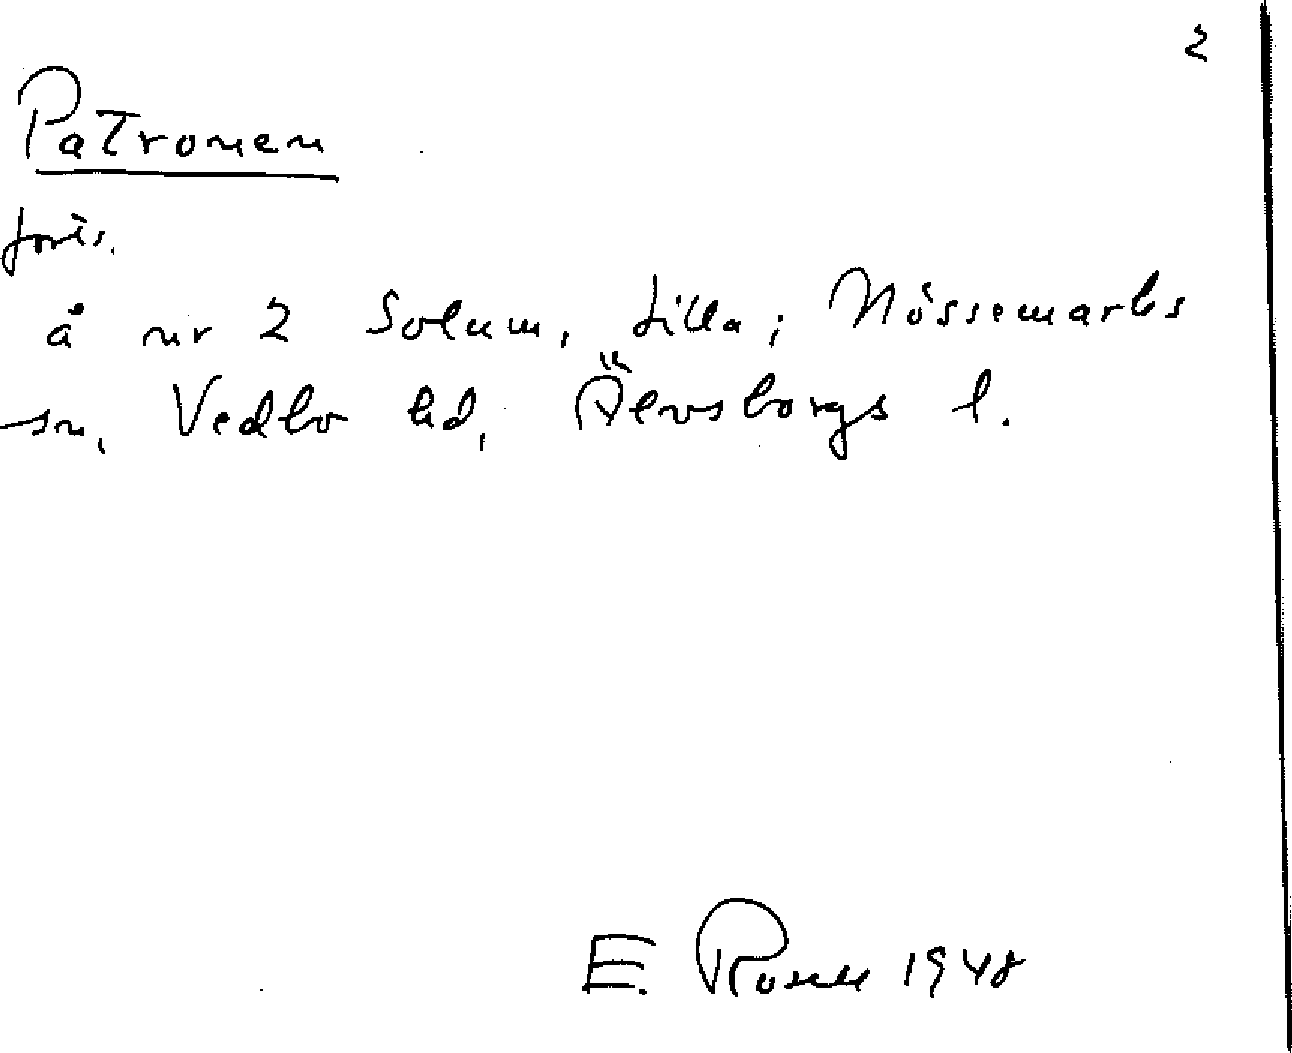 2
Patronen
förls.
å nr 2 Solum, Lilla; Nössemarks
sn, Vedbo hd, Älvsborgs l.
E. Rosell 1948